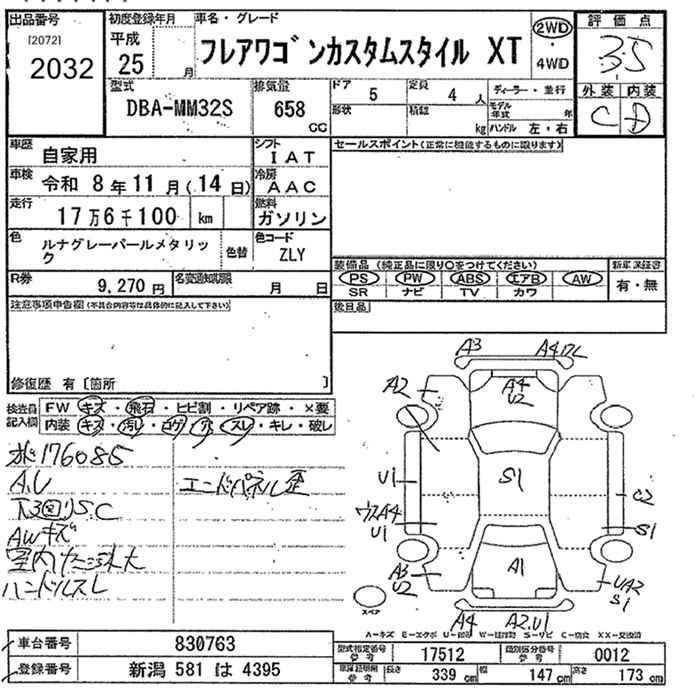 出品番号 初度登録年月 車名・グレード 評価点
[2072]
2032
平成 25 月
フレアワゴンカスタムスタイル XT
2WD ・ 4WD
3.5
外装 内装
C D
型式 排気量 ドア 5 定員 4 人 ディーラー・並行
DBA-MM32S 658 CC
形状 積載 kg モデル年式 年
ハンドル 左・右
車歴 自家用 シフト IAT
セールスポイント(正常に機能するものに限ります)
車検 令和 8 年 11 月 ( 14 日) 冷房 AAC
走行 17 万 6 千 100 km 燃料 ガソリン
色 ルナグレーパールメタリック 色替 色コード ZLY
装備品 (純正品に限り○をつけてください) 新車保証書
PS PW ABS エアB AW 有・無
SR ナビ TV カワ
R券 9,270 円 名変通知期限 月 日
後日品
注意事項申告欄(不具合内容等は具体的に記入して下さい)
修復歴 有 [箇所 ]
検査員記入欄 FW キズ ・ 飛石 ・ ヒビ割 ・ リペア跡 ・ ×要
内装 キズ ・ 汚レ ・ コゲ ・ 穴 ・ スレ ・ キレ ・ 破レ
176085
A.U エンドパネル歪
下3回りS.C
AWキズ
ハンドルスレ
A3 A4
A2 A4 U2
U1 S1 C2
A4 U1 S1
A3 U2 A1 UA2 S1
スペア
A4 A2.U1
A-キズ E-エクボ U-凹 W-波 S-サビ C-腐食 XX-交換済
車台番号 830763
登録番号 新潟 581 は 4395
型式指定番号 参考 17512 類別区分番号 参考 0012
車検証明細 参考 長さ 339 cm 幅 147 cm 高さ 173 cm